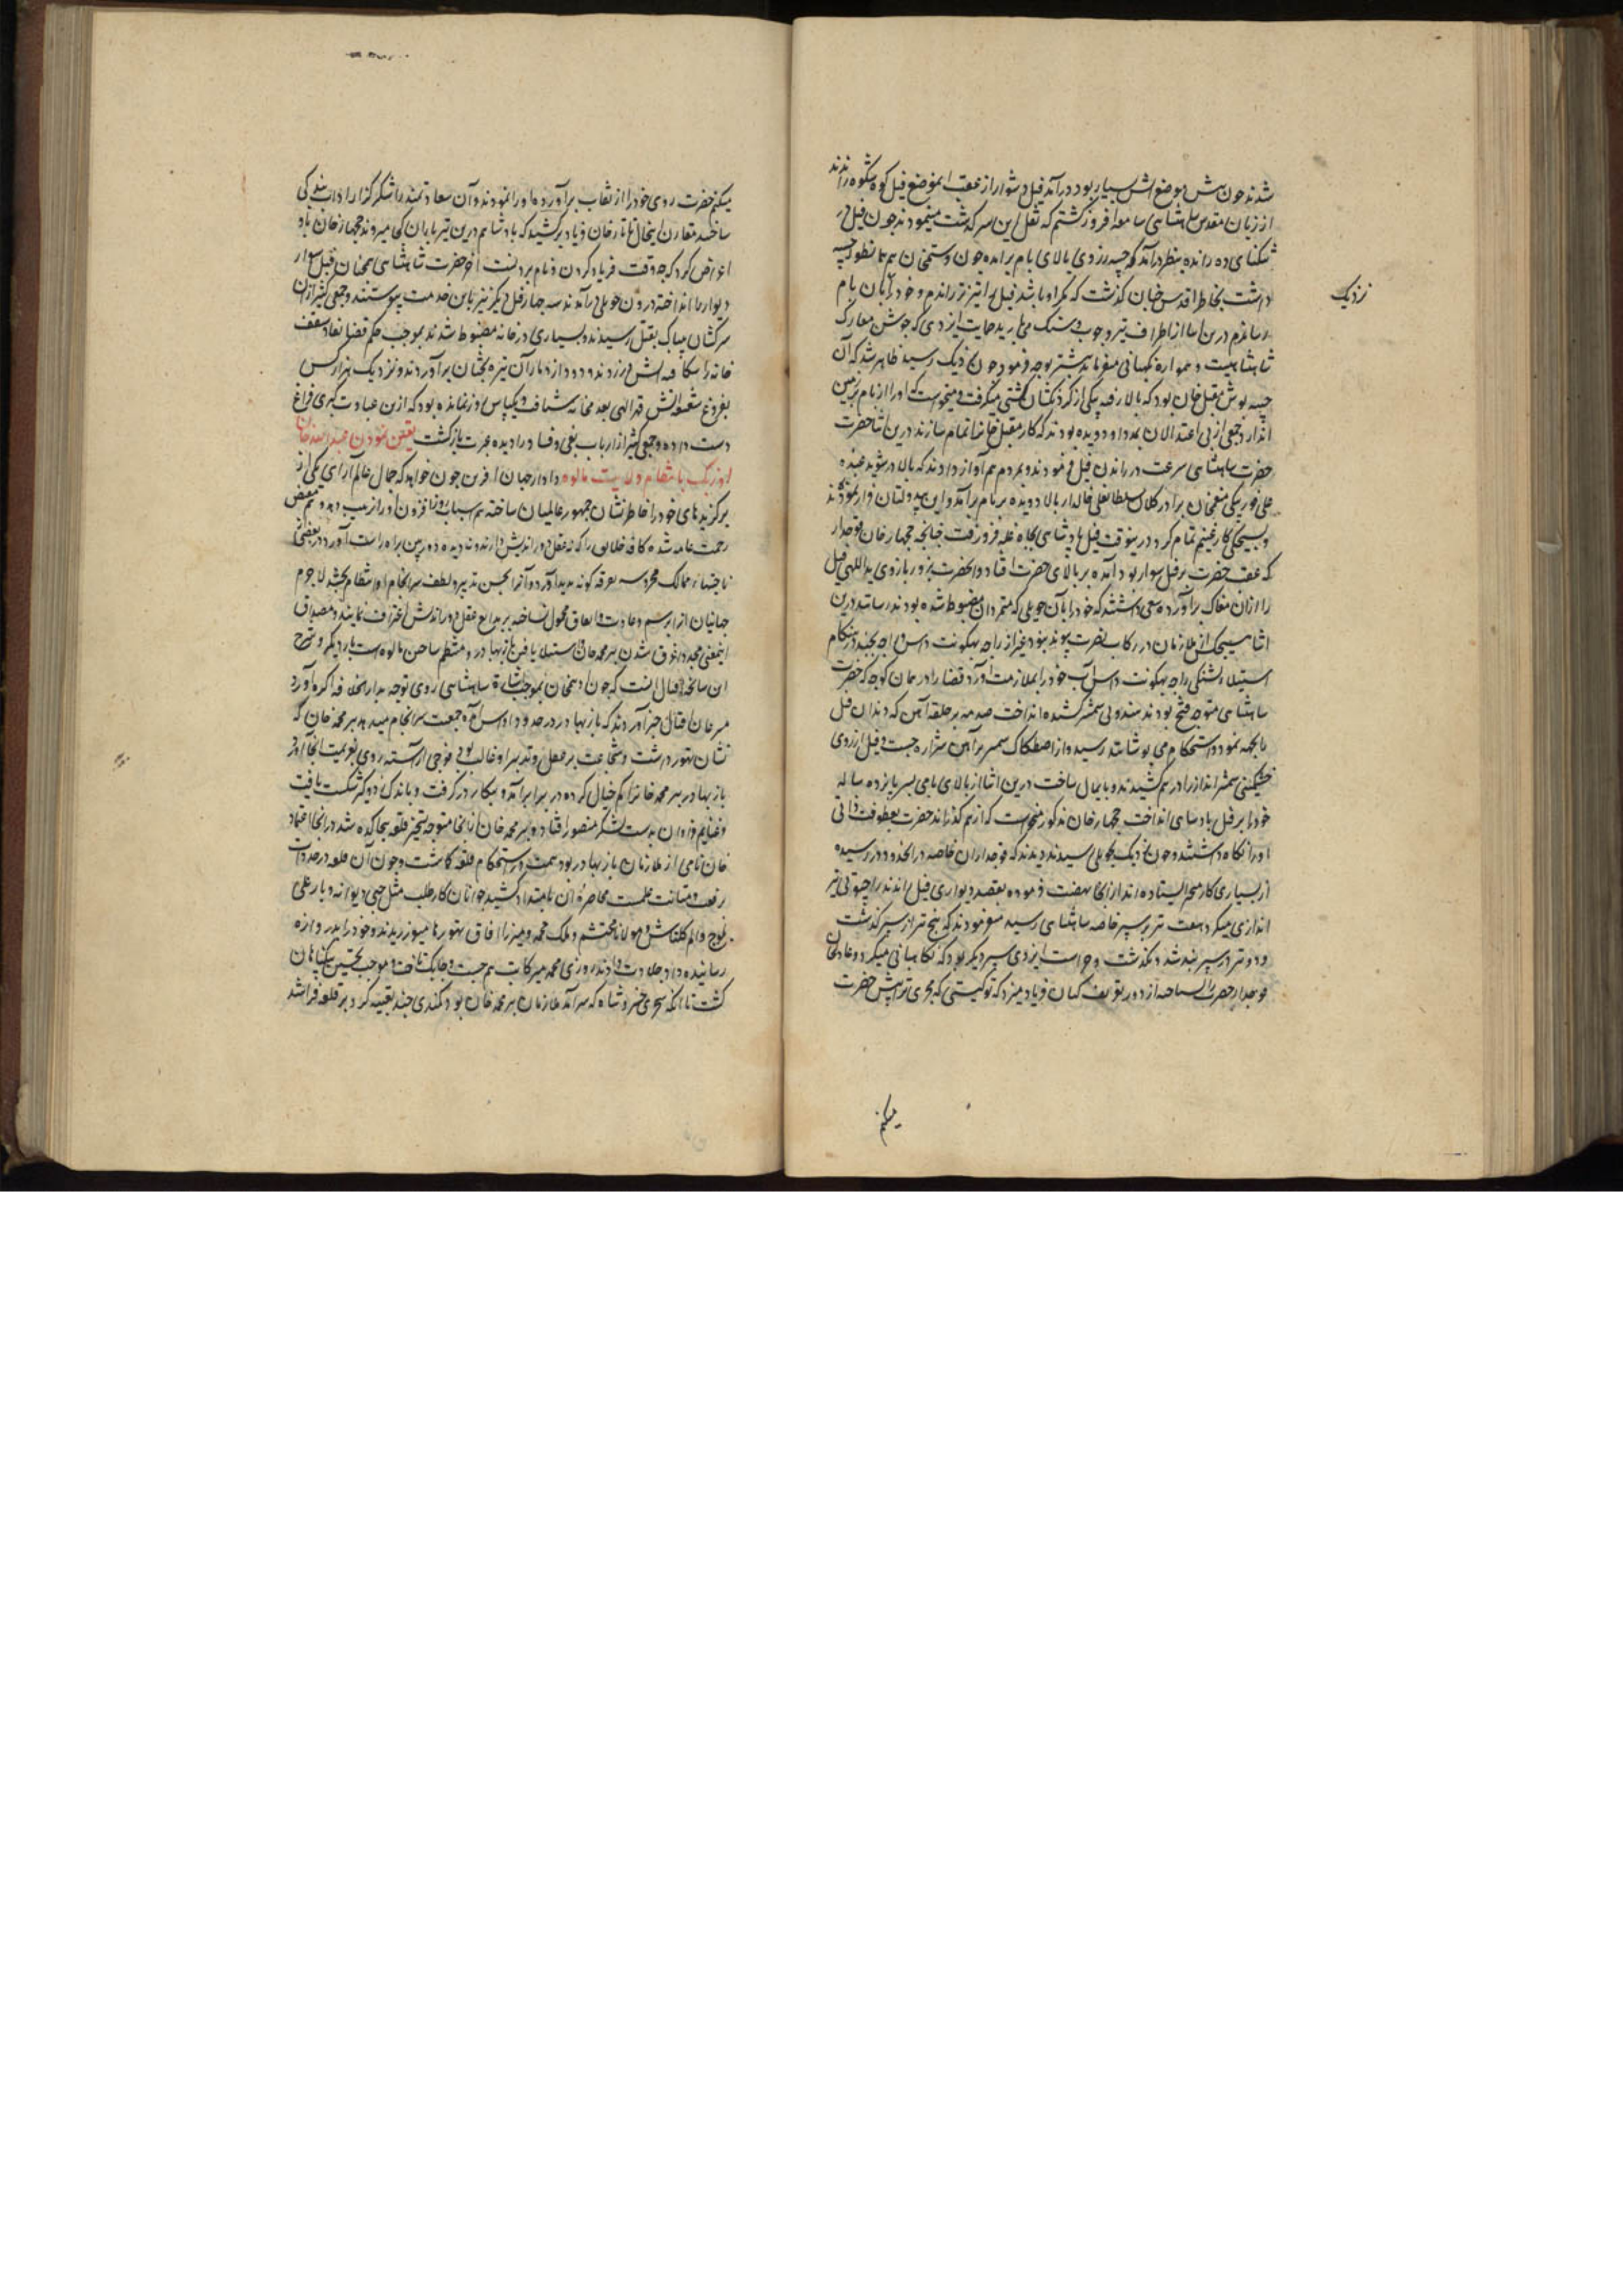 شدند چون پیش موضع آتش بسیار بود در آمد فیل دشوار از عقب بموضع فیل کوه شکوه راندند
از زبان مقدس شاهنشاهی سامعه افروز گشتم که نقل این سرگذشت میفرمودند چون فیل در
تنگنای ده رانده بنظر درآمد که جیبه زردی بالای بام برآمده چون دستمخان هم همانطور جیبه
داشت بخاطر اقدس چنان گذشت که مگر او باشد فیل را تیزتر راندم و خود را بآن بام
رساندم درین اثنا از اطراف تیر و چوب و سنگ می بارید حمایت ایزدی که جوشن معارک
شاهنشاهیست و همواره نگهبانی میفرماید بیشتر توجه فرمود چون نزدیک رسید ظاهر شد که آن
جیبه پوش مقبل خان بود که بالا رفته بیکی از گردنکشان کشتی میگرفت و میخواست که او را از بام بزمین
اندازد و جمعی از بی اعتدالان بمدد او دویده بودند که کار مقبل خان را تمام سازند درین اثنا حضرت
حضرت شاهنشاهی سرعت در راندن فیل فرمودند و بمردم هم آواز دادند که بالا در شوید بنده
علی قور بیگی منعم خان برادر کلان سلطانعلی خالدار بالا دویده بر بام برآمد و این بیدولتان فرار نمودند
و بسبکی کار غنیم تمام کرد درینوقت فیل پادشاهی بچاه غله فرو رفت چنانچه جهجار خان فوجدار
که عقب حضرت بر فیل سوار بود آمده بر بالای حضرت افتاد و آنحضرت بزور بازوی یداللهی فیل
را از آن مغاک برآورده سعی داشتند که خود را بآن حویلی که متمردان مضبوط شده بودند رسانند درین
اثنا هیچیک از ملازمان در رکاب نصرت پیوند نبود غیر از راجه بهگونت داس و راجه بچند هنگام
استیلاء تشنگی راجه بهگونت داس آب خود را بملازمت آورد قضا را در همان کوچه که حضرت
شاهنشاهی متوجه فتح بودند هندوئی شمشیر کشیده انداخت صدمه بر حلقه آهن که دندان فیل
را بجهة نمود و استحکام می پوشانند رسید و از اصطکاک شمشیر بر آهن شراره جست و فیل از روی
خشمگینی شمشیر انداز را در هم کشید و پایمال ساخت درین اثنا از بالای بامی پسر پانزده ساله
خود را بر فیل پادشاهی انداخت جهجار خان مذکور میخواست که از هم گذراند حضرت بعطوفت ذاتی
او را نگاه داشتند و چون نزدیک بحویلی رسیدند دیدند که فوجداران خاصه در آنحدود در رسیده
از بسیاری کار متحیر ایستاده اند از آنجا نهضت فرموده بقصد دیواری فیل راندند راجپوتی تیر
اندازی میکرد هفت تیر بر سپر خاصه شاهنشاهی رسید میفرمودند که پنج تیر از سپر گذشت
و دو تیر در سپر بند شد و نگذشت و حراست ایزدی سپر دیگر بود که نگاهبانی میکرد و عادلخان
فوجدار حضرت را نشناخته از دور تعریف کنان فریاد میزد که تو کیستی که مجری ترا پیش حضرت
نزدیک
میکنم
میکنم حضرت روی خود را از نقاب برآورده او را نمودند و آن سعادتمند را شکرگزار آداب بندگی
ساختند مقارن اینحال تاتار خان فریاد برکشید که پادشاهم درین تیرباران کجا میروند جهجار خان باو
اعراض کرد که چه وقت فریاد کردن و نام بردنست آخر حضرت شاهنشاهی همچنان فیل سوار
دیوار را انداخته درون حویلی درآمدند سه چهار فیل دیگر نیز باین خدمت پیوستند و جمعی کثیر از آن
سرکشان بیباک بقتل رسیدند و بسیاری در خانه مضبوط شدند بموجب حکم قضا نفاذ سقف
خانه را شکافته آتش در زدند و دود از دمار آن تیره بختان برآوردند و نزدیک هزار کس
بفروغ شعله آتش قهر الهی بعدمخانه شتافت و یکپاس روز نمانده بود که ازین عبادت کبری فراغ
دست داده و جمعی کثیر از ارباب بغی و فساد را دیده عبرت باز گشت تعین نمودن عبدالله خان
اوزبک بانتظام ولایت مالوه دادار جهان آفرین چون خواهد که جمال عالم آرای یکی از
برگزیدهای خود را خاطرنشان جمهور عالمیان ساخته هم سباب روزافزون او را از غیب دهد و هم محض
رحمت عامه شده کافه خلایق را که نه عقل دوراندیش دارند و نه دیده دوربین براه راست آورد در بعضی
ناحیتهاء ممالک محروسه تفرقه گونه پدید آورد و آنرا بحسن تدبیر و لطف سرانجام او انتظام بخشد لاجرم
جهانیان از این رسم و عادت و اتفاق محمول نساخته بر بدایع عقل دوراندیش اعتراف نمایند و مصداق
اینمعنی مجددا غرق شدن پیر محمد خان و استیلا یافتن بازبهادر و منتظم ساختن مالوه است بار دیگر و شرح
این سانحه اقبال آنست که چون ادهم خان بموجب اشارة شاهنشاهی روی توجه بدارالخلافه آگره آورد
مبشران اقبال خبر آوردند که بازبهادر در حدود اواس آمده جمعیت سرانجام میدهد پیر محمد خان که
نشان تهور داشت و شجاعت بر عقل و تدبیر او غالب بود فوجی آراسته روی بعزیمت آنجا آورد
بازبهادر پیر محمد خان را کم خیال کرده در برابر آمد و پیکار در گرفت و باندک زدوگیر شکست یافت
و غنایم فراوان بدست لشکر منصور افتاد و پیر محمد خان از آنجا متوجه تسخیر قلعه بیجاگده شد در آنجا اعتماد
خان نامی از ملازمان بازبهادر بود همت در استحکام قلعه گماشت و چون آن قلعه در حد ذات
رفعت و متانت داشت محاصره آن بامتداد کشید جوانان کارطلب مثل حبی دیوانه و یار علی
بلوج و الم کلتاش و مولانا محتشم و ملک محمد و میرزا آفاق تهورها میورزیدند و خود را بدروازه
رسانیده داد جلادت میدادند روزی محمد میر کاتب هم جست و چابک تاخت و موجب تحسین بیگناهان
گشت تا آنکه سحری خسرو شاه که سرآمد ملازمان پیر محمد خان بود کمندی چند تعبیه کرد بر قلعه فراشد